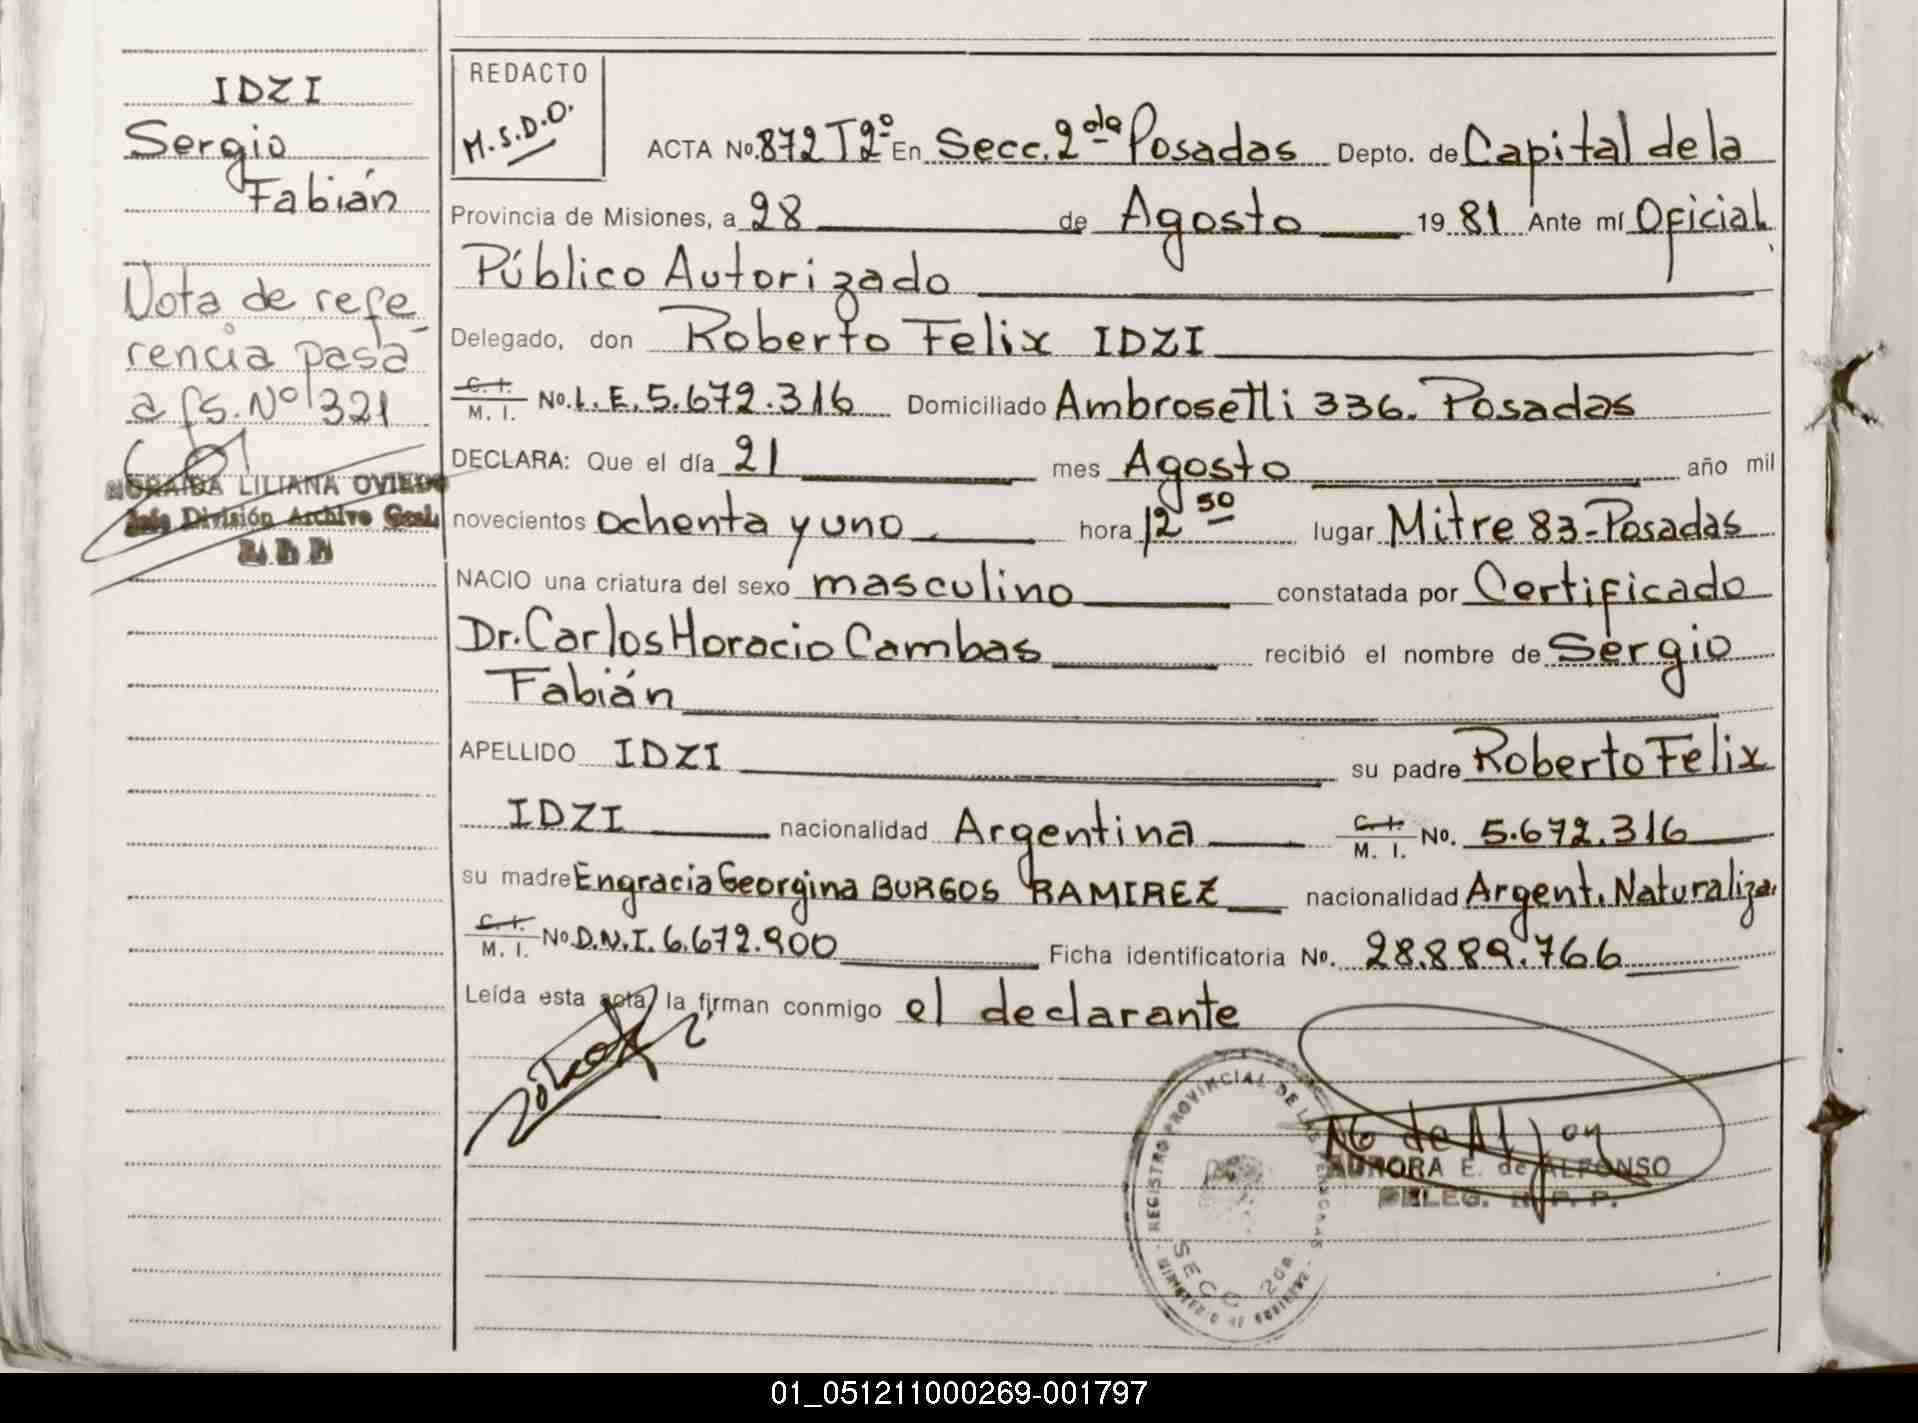 IDZI
Sergio
Fabián
Nota de refe-
rencia pasa
a fs. Nº 321
NORAIDA LILIANA OVIEDO
Jefe División Archivo Gral.
REDACTO
M.S.D.O.
ACTA No. 872 T2º En Secc. 2da Posadas Depto. de Capital de la
Provincia de Misiones, a 28 de Agosto 19 81 Ante mí Oficial
Público Autorizado
Delegado, don Roberto Felix IDZI
C. I. / M. I. No. L.E. 5.672.316 Domiciliado Ambrosetti 336. Posadas
DECLARA: Que el día 21 mes Agosto año mil
novecientos ochenta y uno hora 12 50 lugar Mitre 83-Posadas
NACIO una criatura del sexo masculino constatada por Certificado
Dr. Carlos Horacio Cambas recibió el nombre de Sergio
Fabián
APELLIDO IDZI su padre Roberto Felix
IDZI nacionalidad Argentina C. I. / M. I. No. 5.672.316
su madre Engracia Georgina BURGOS RAMIREZ nacionalidad Argent. Naturaliza.
C. I. / M. I. No D.N.I. 6.672.900 Ficha identificatoria No. 28.889.766
Leída esta acta, la firman conmigo el declarante
REGISTRO PROVINCIAL DE LAS PERSONAS
SECC 2da
MINISTERIO DE GOBIERNO
AURORA E. de ALFONSO
DELEG. R. P. P.
01_051211000269-001797